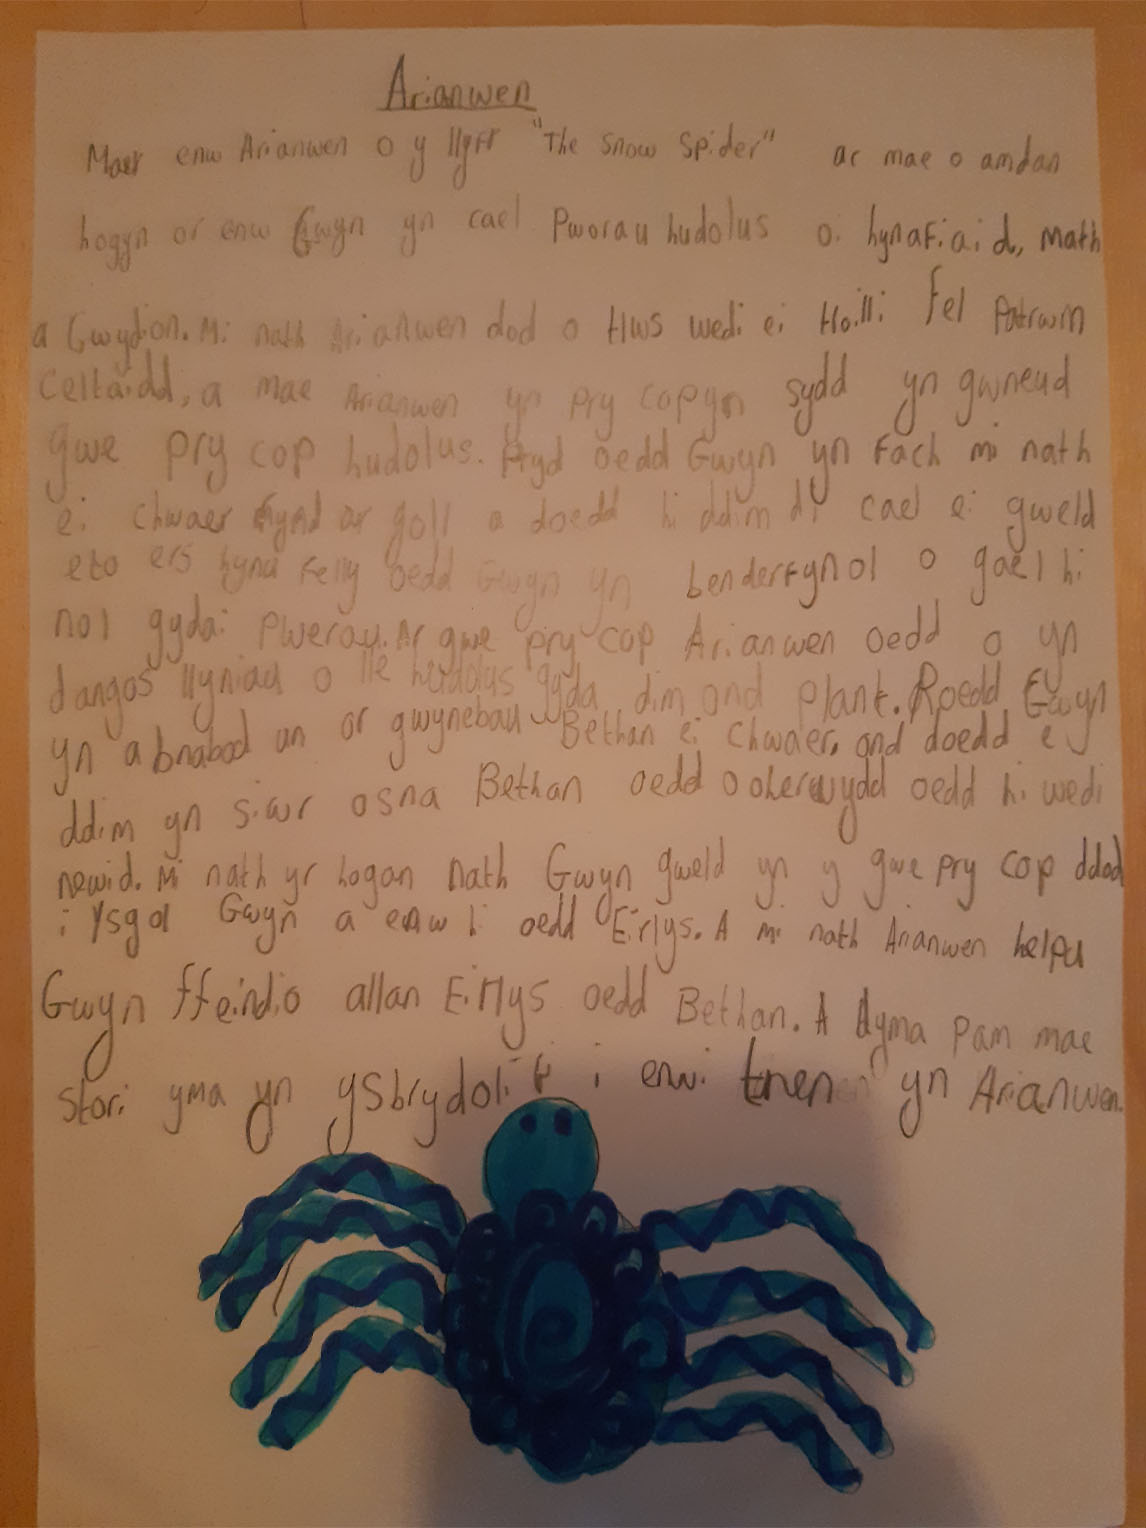 Arianwen
Maer enw Arianwen o y llyfr "The Snow Spider" ac mae o amdan
hogyn or enw Gwyn yn cael Pworau hudolus o hynafiaid, Math
a Gwydion. Mi nath Arianwen dod o tlws wedi ei Hoilli fel Patrwm
Celtaidd, a mae Arianwen yn pry copyn sydd yn gwneud
gwe pry cop hudolus. Pryd oedd Gwyn yn Fach mi nath
ei chwaer fynd ar goll a doedd hi ddim di cael ei gweld
eto ers hynd Felly oedd Gwyn yn benderfynol o gael hi
nol gydai Pwerau. Ar gwe pry cop Arianwen oedd o yn
dangos llyniau o lle hudolus gyda dim ond plant. Roedd Gwyn
yn abnabod un or gwynebau Bethan ei Chwaer, ond doedd e
ddim yn siwr osna Bethan oedd o oherwydd oedd hi wedi
newid. Mi nath yr hogan nath Gwyn gweld yn y gwe pry cop ddod
i Ysgol Gwyn a enw hi oedd Eirlys. A mi nath Arianwen helpu
Gwyn ffeindio allan Eirlys oedd Bethan. A dyma Pam mae
Stori yma yn ysbrydoli fi i enwi tren yn Arianwen.